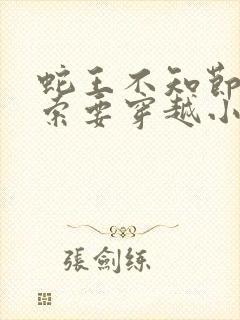 蛇王不知節
索要穿越小
張劍練